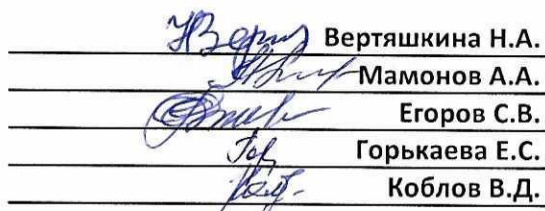 Вертяшкина Н.А.
Мамонов А.А.
Егоров С.В.
Горькаева Е.С.
Коблов В.Д.